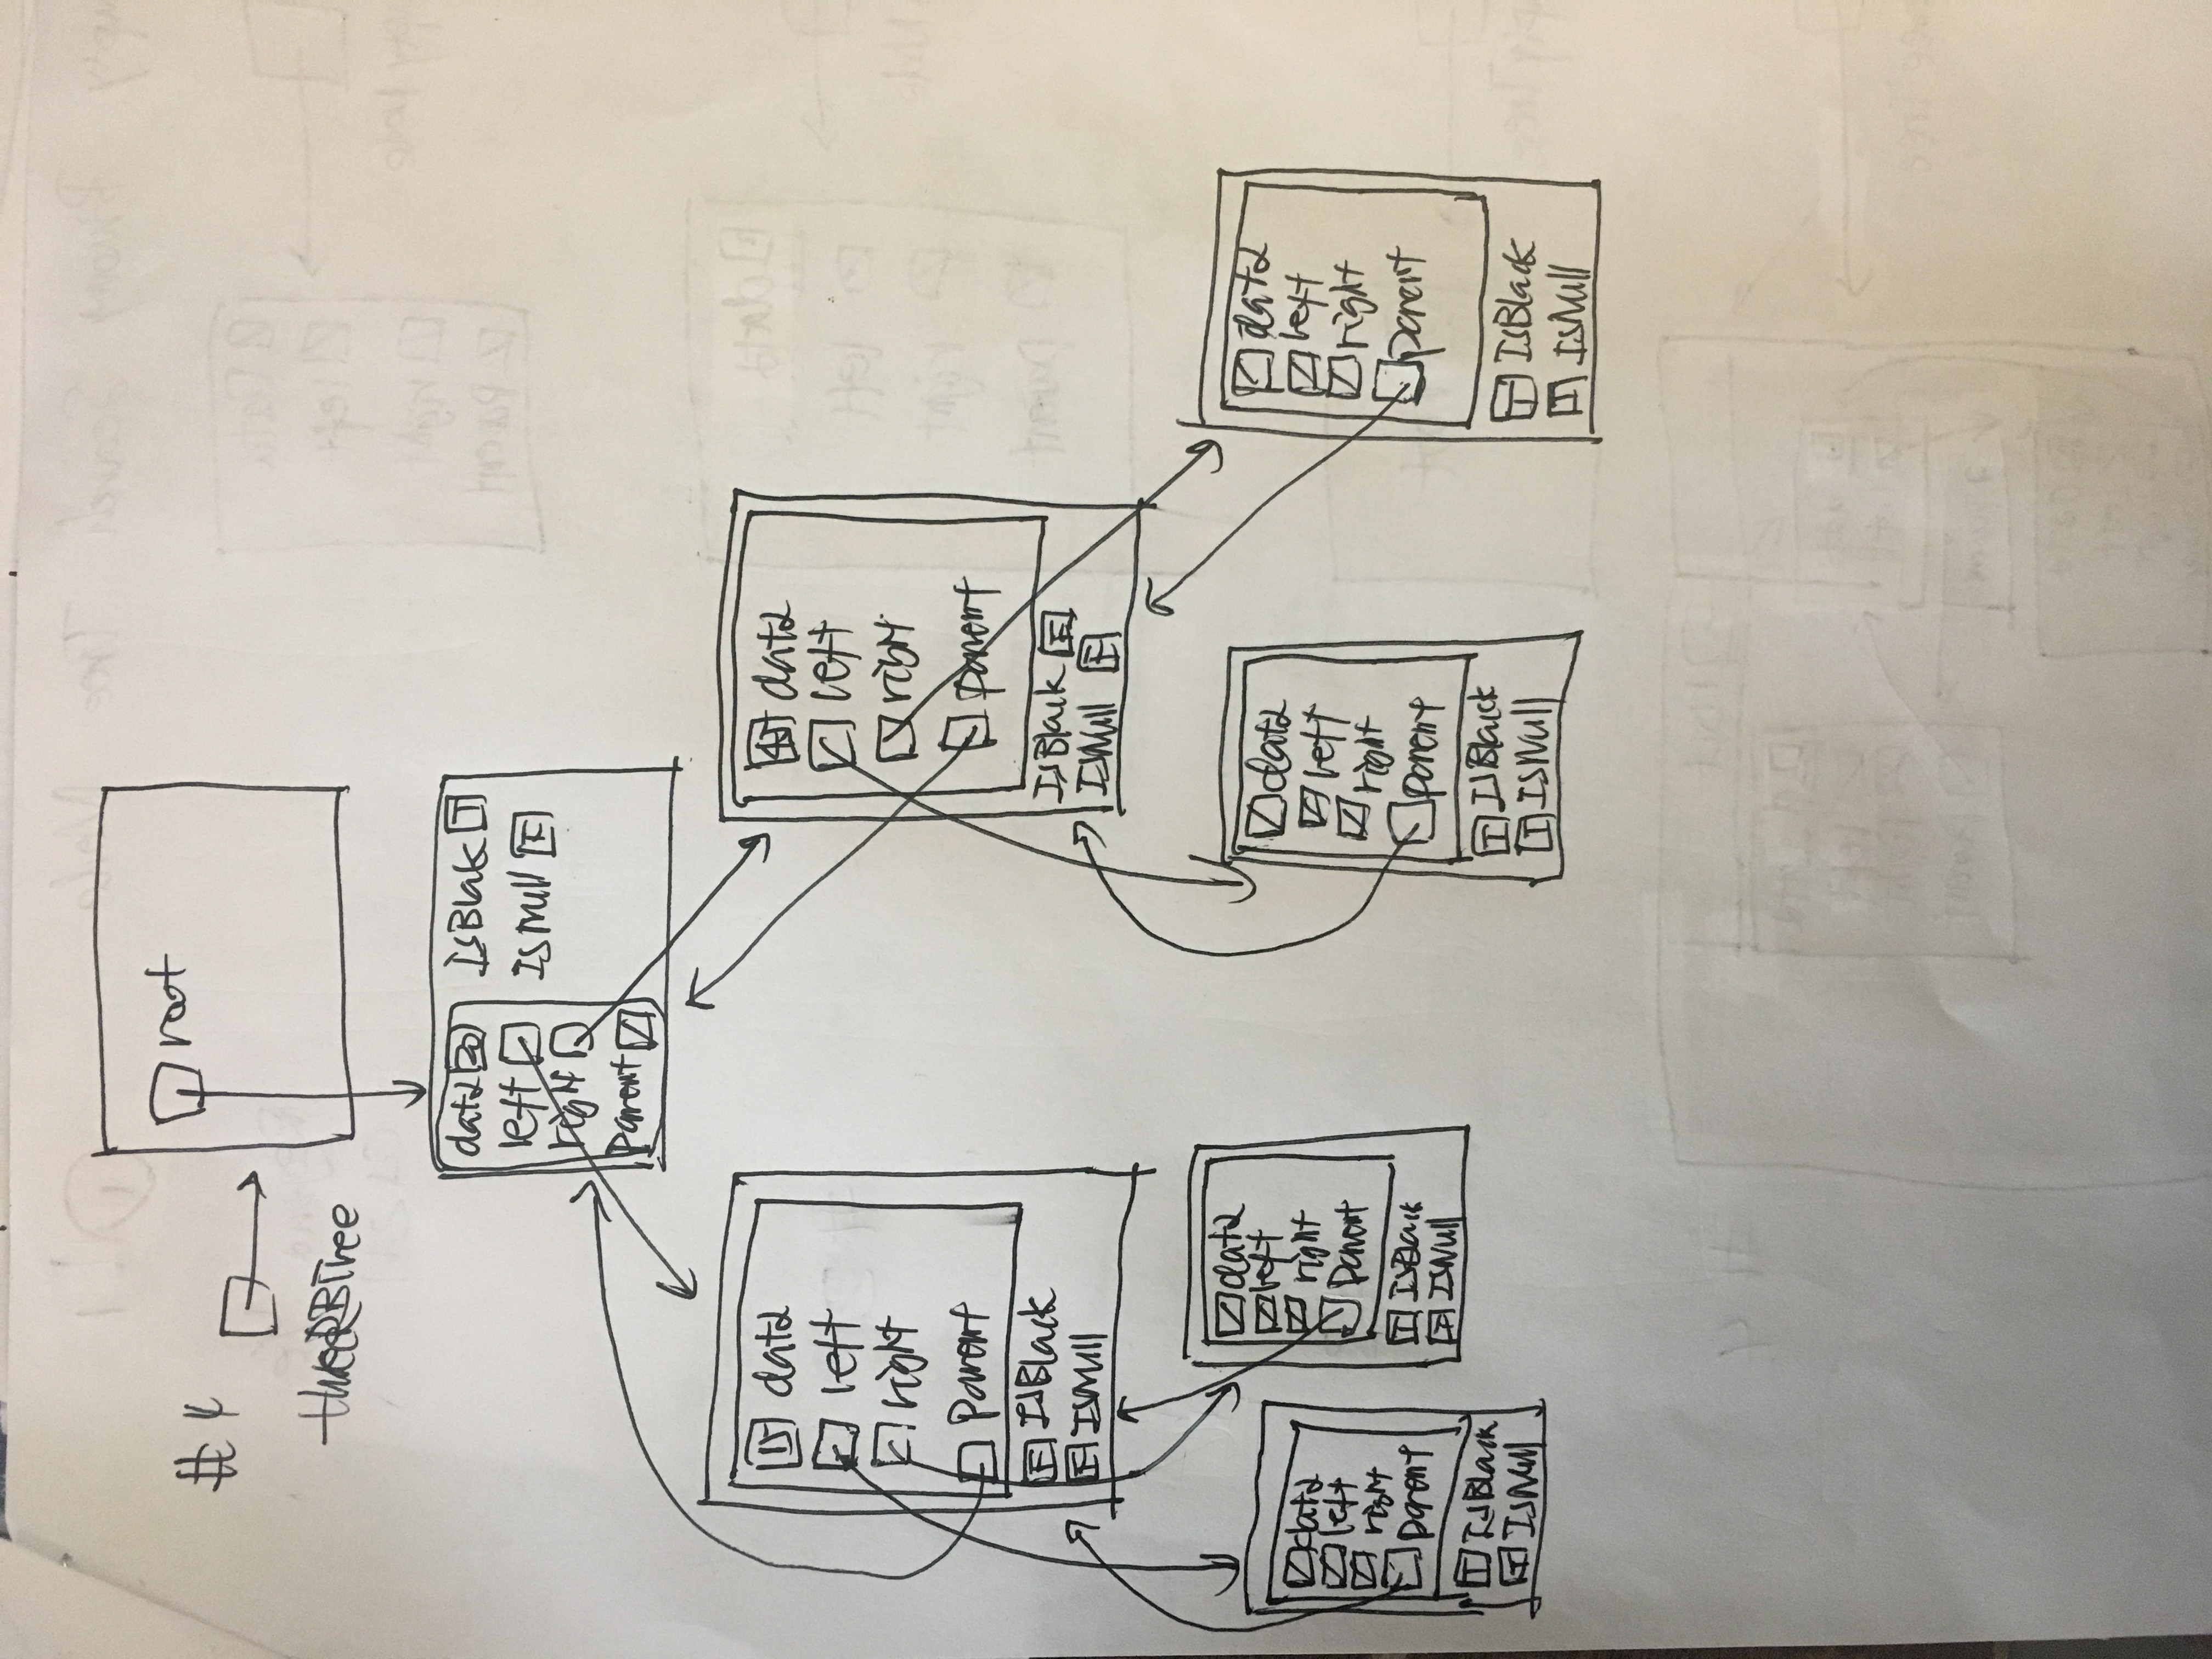 root
# 4
threeRBTree
data 30 IsBlak T
left IsNull F
right
Parent
15 data
left
right
Parent
F IsBlack
F IsNull
45 data
left
right
Parent
IsBlack F
IsNull F
data
left
right
Parent
T IsBlack
T IsNull
data
left
right
Parent
T IsBlack
IsNull
data
left
right
Parent
T IsBlack
T IsNull
data
left
right
parent
T IsBlack
T IsNull